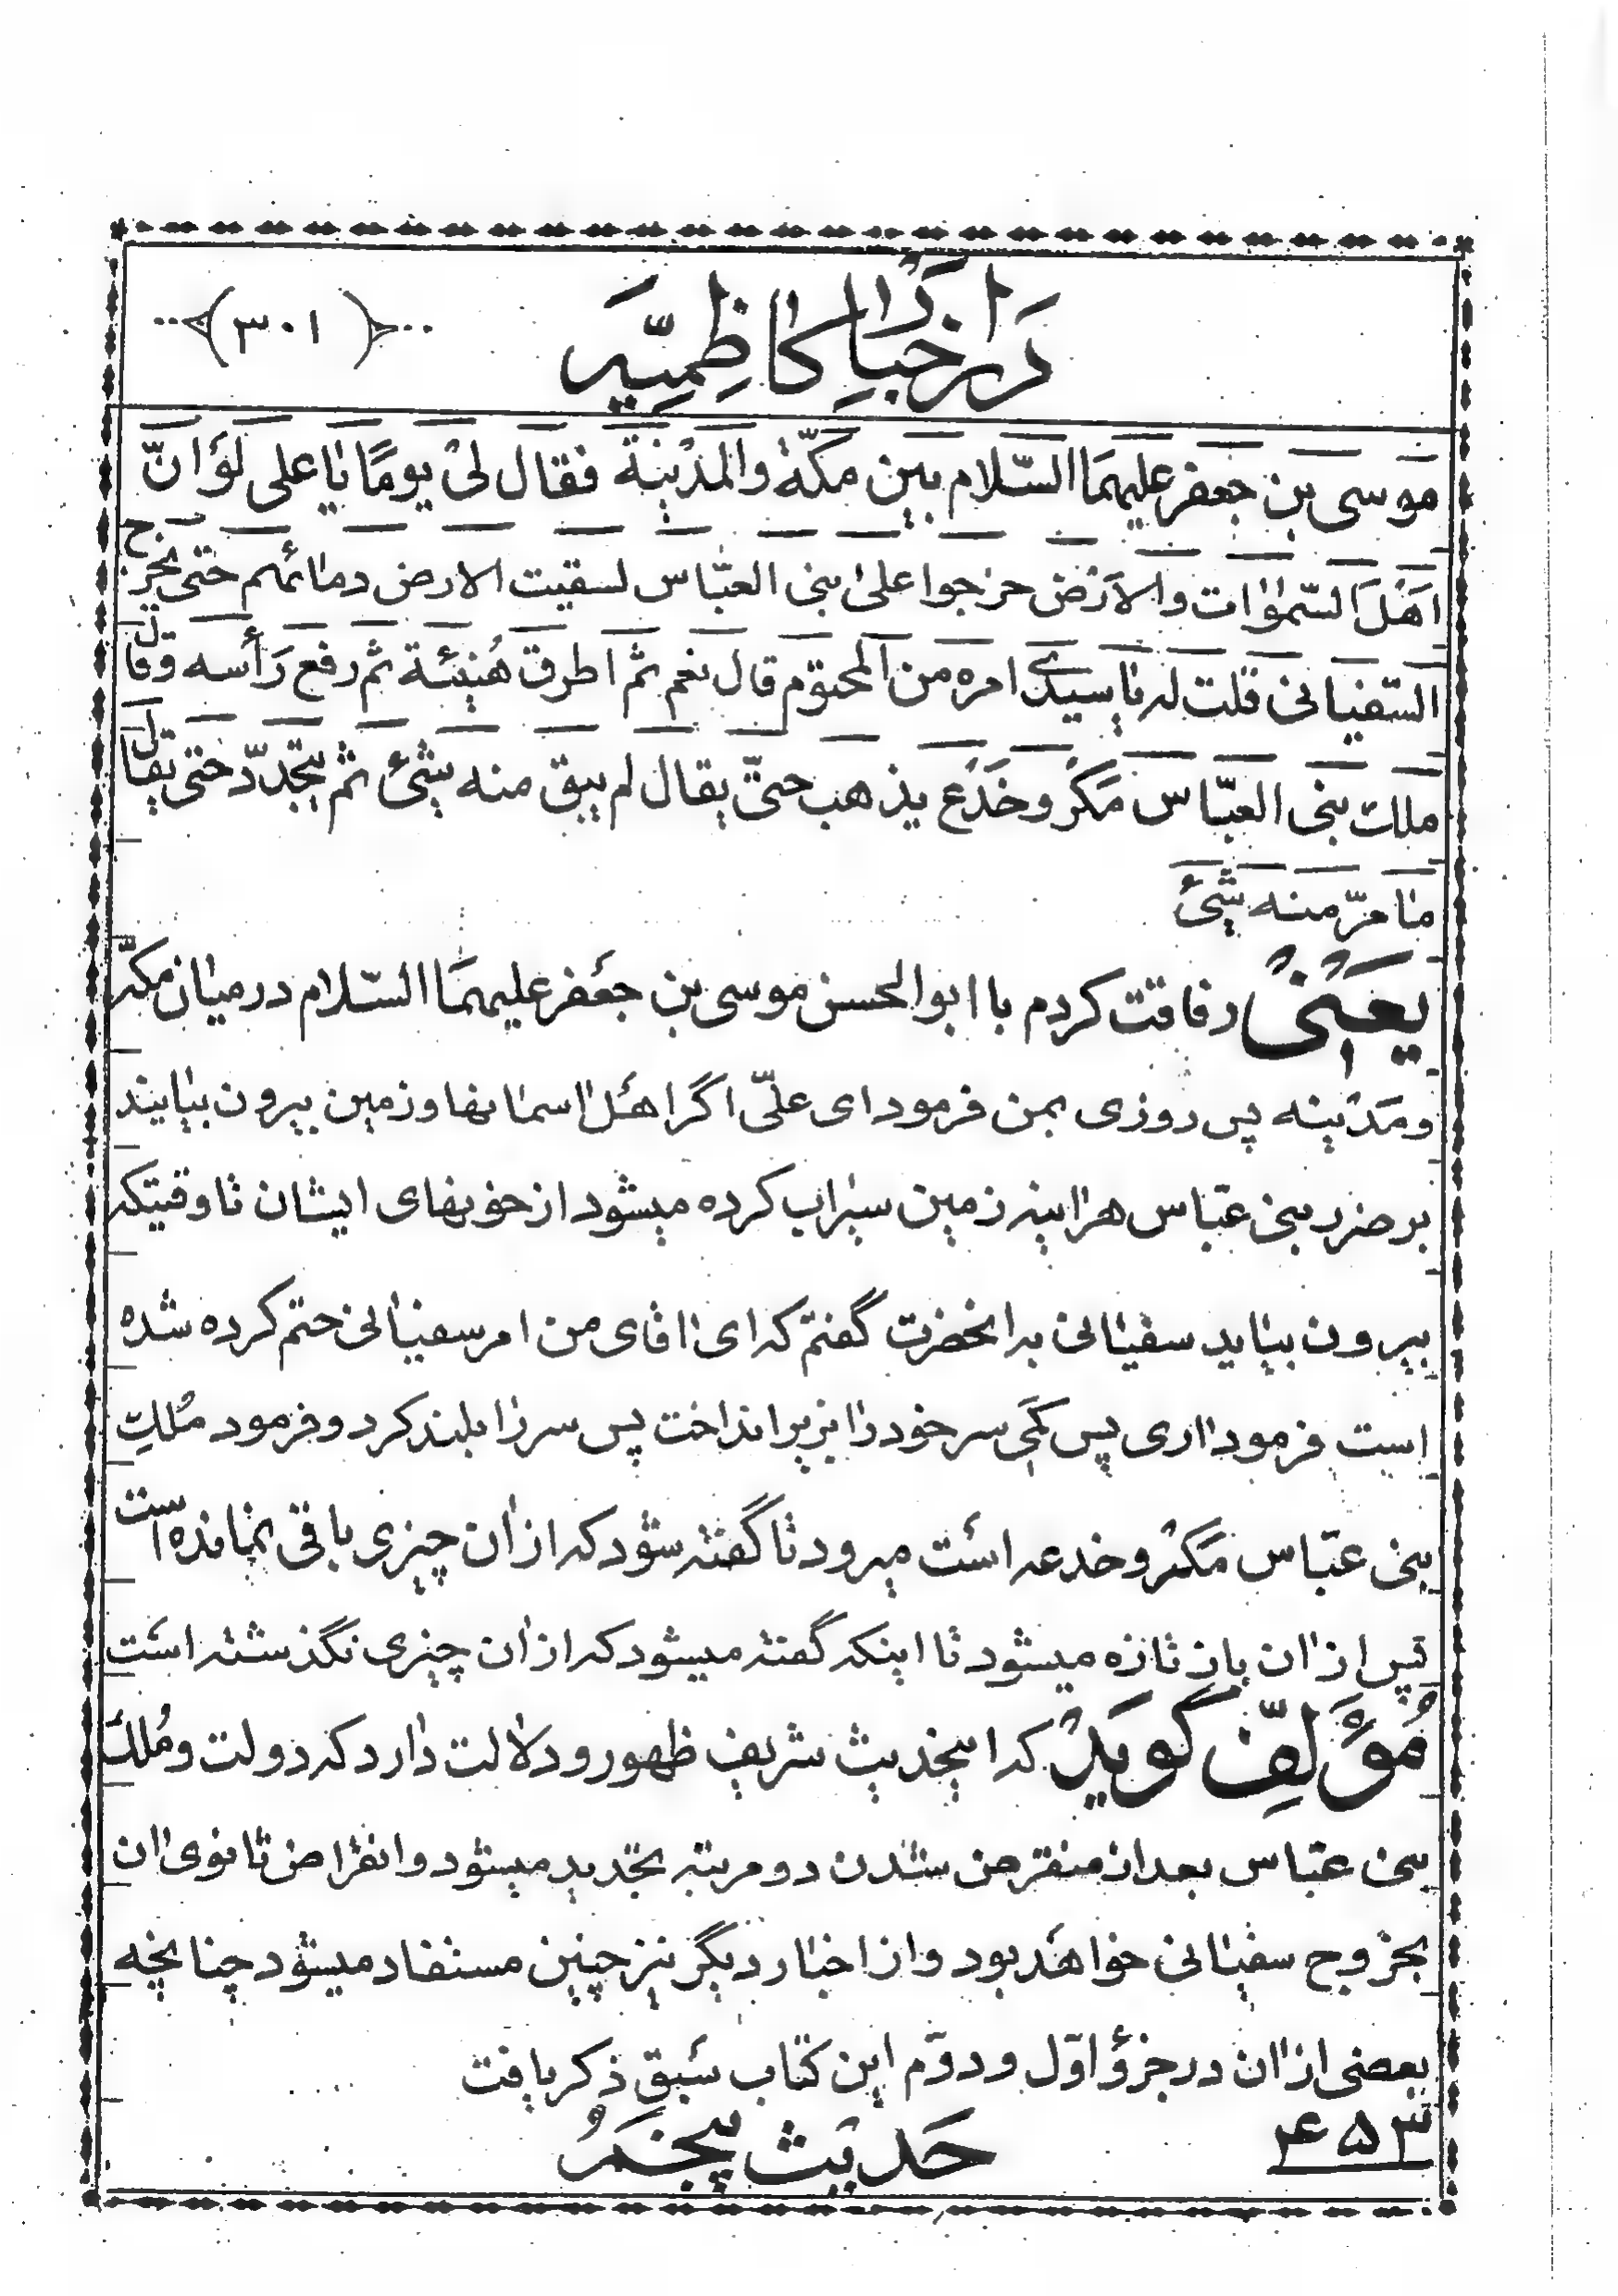 در اخبار کاظمیّه
(۳۰۱)
موسی بن جعفر علیهما السّلام بین مکّة والمدینة فقال لی یومًا یا علی لو انّ
اهل السّموات والارض خرجوا علی بنی العبّاس لسقیت الارض دمائهم حتی یخرج
السّفیانی قلت له یا سیدی امره من المحتوم قال نعم ثم اطرق هنیئة ثم رفع رأسه وقال
ملک بنی العبّاس مکر وخدع یذهب حتیّ یقال لم یبق منه شئ ثم یتجدّد حتی یقال
ما مرّ منه شئ
یعنی رفاقت کردم با ابوالحسن موسی بن جعفر علیهما السّلام در میان مکّه
ومدینه پس روزی بمن فرمود ای علیّ اگر اهل اسمانها وزمین بیرون بیایند
بر ضرر بنی عبّاس هراینه زمین سیراب کرده میشود از خونهای ایشان تا وقتیکه
بیرون بیاید سفیانی بدانحضرت گفتم که ای اقای من امر سفیانی حتم کرده شده
است فرمود اری پس کمی سر خود را بزیر انداخت پس سر را بلند کرد وفرمود ملک
بنی عبّاس مکر وخدعه است میرود تا گفته شود که از ان چیزی باقی نمانده است
پس از ان باز تازه میشود تا اینکه گفته میشود که از ان چیزی نگذشته است
مؤلّف گوید که اینحدیث شریف ظهور ودلالت دارد که دولت وملک
بنی عبّاس بعد از منقرض شدن دو مرتبه تجدید میشود وانقراض ثانوی ان
بخروج سفیانی خواهد بود واز اخبار دیگر نیز چنین مستفاد میشود چنانچه
بعضی از ان در جزؤ اوّل ودوّم این کتاب سبق ذکر یافت
حدیث پنجم
۴۵۳